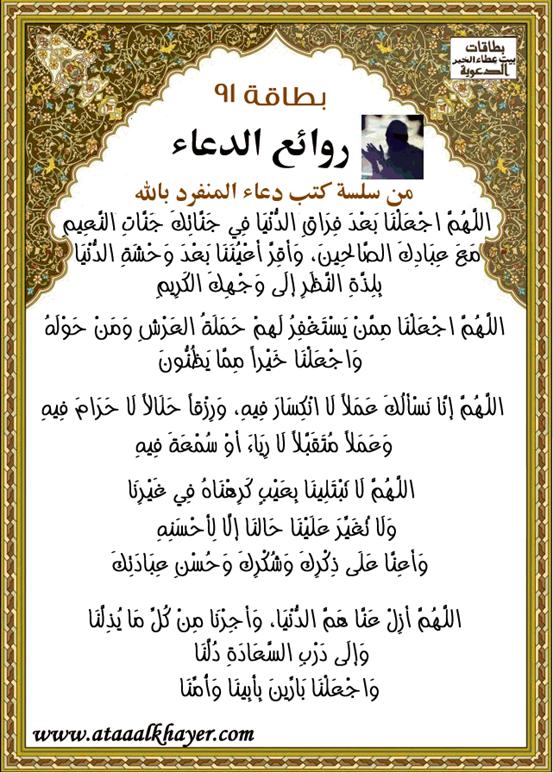 بطاقات
بيت عطاء الخير
الدعوية
بطاقة ٩١
روائع الدعاء
من سلسة كتب دعاء المنفرد بالله
اللَّهُمَّ اجْعَلْنَا بَعْدَ فِرَاقِ الدُّنْيَا فِي جَنَّاتِكَ جَنَّاتِ النَّعِيمِ
مَعَ عِبَادِكَ الصَّالِحِينَ، وَأَقِرَّ أَعْيُنَنَا بَعْدَ وَحْشَةِ الدُّنْيَا
بِلِذَّةِ النَّظَرِ إِلَى وَجْهِكَ الكَرِيمِ
اللَّهُمَّ اجْعَلْنَا مِمَّنْ يَسْتَغْفِرُ لَهمْ حَمَلَةُ العَرْشِ وَمَنْ حَوْلَهُ
وَاجْعَلْنَا خَيْراً مِمَّا يَظُنُّونَ
اللَّهُمَّ إنَّا نَسْأَلُكَ عَمَلاً لَا انْكِسَارَ فِيهِ، وَرِزْقاً حَلَالاً لَا حَرَامَ فِيهِ
وَعَمَلاً مُتَقَبَّلاً لَا رِيَاءَ أَوْ سُمْعَةَ فِيهِ
اللَّهُمَّ لَا تَبْتَلِينَا بِعَيْبٍ كَرِهْنَاهُ فِي غَيْرِنَا
وَلَا تُغَيِّرَ عَلَيْنَا حَالنَا إلَّا لِأَحْسَنِهِ
وَأَعِنَّا عَلَى ذِكْرِكَ وَشُكْرِكَ وَحُسْنِ عِبَادَتِكَ
اللَّهُمَّ أَزِلْ عَنَّا هَمَّ الدُّنْيَا، وَأَجِرْنَا مِنْ كُلِّ مَا يُذِلُّنَا
وَإِلَى دَرْبِ السَّعَادَةِ دُلَّنَا
وَاجْعَلْنَا بَارِّينَ بِأَبِينَا وَأُمِّنَا
www.ataaalkhayer.com